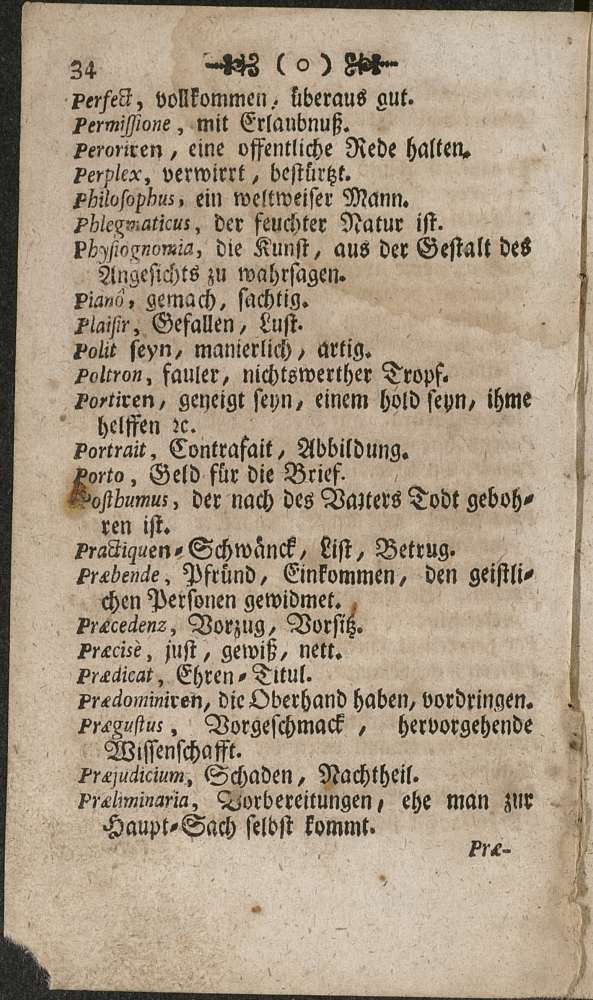 34 ( o )
Perfect, vollkommen, überaus gut.
Permissione, mit Erlaubnuß.
Peroriren, eine offentliche Rede halten.
Perplex, verwirrt, bestürtzt.
Philosophus, ein weltweiser Mann.
Phlegmaticus, der feuchter Natur ist.
Physiognomia, die Kunst, aus der Gestalt des
Angesichts zu wahrsagen.
Pianô, gemach, sachtig.
Plaisir, Gefallen, Lust.
Polit seyn, manierlich, artig.
Poltron, fauler, nichtswerther Tropf.
Portiren, geneigt seyn, einem hold seyn, ihme
helffen ꝛc.
Portrait, Contrafait, Abbildung.
Porto, Geld für die Brief.
Posthumus, der nach des Vatters Todt geboh-
ren ist.
Practiquen-Schwänck, List, Betrug.
Præbende, Pfründ, Einkommen, den geistli-
chen Personen gewidmet.
Præcedenz, Vorzug, Vorsitz.
Præcisè, just, gewiß, nett.
Prædicat, Ehren-Titul.
Prædominiren, die Oberhand haben, vordringen.
Prægustus, Vorgeschmack, hervorgehende
Wissenschafft.
Præjudicium, Schaden, Nachtheil.
Præliminaria, Vorbereitungen, ehe man zur
Haupt-Sach selbst kommt.
Præ-